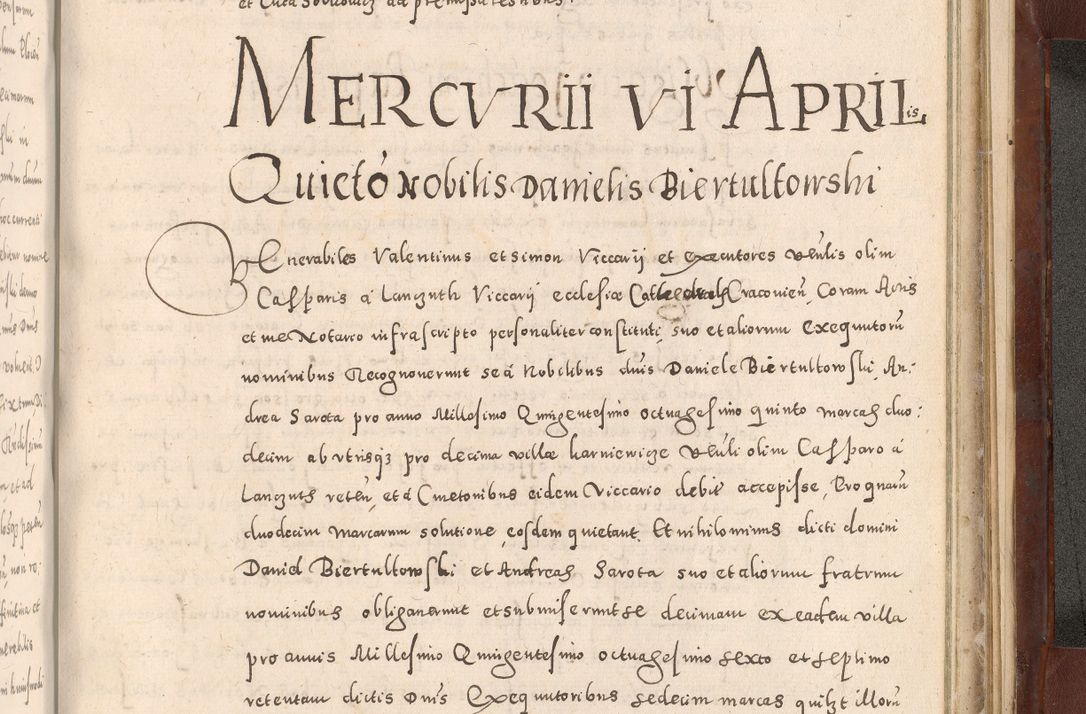 MERCVRII VI APRILis
Quictó Nobilis Danielis Biertultowski
Venerabiles Valentinus et Simon Viccarÿ et executores vełulis olim
Casparis á Lanczuth Viccarÿ ecclesiæ Cattedralis Cracovień Coram Actis
et me Notario infrascripto personaliter constituti suo et aliorum exequutorū
nominibus Recognoverunt se á Nobilibus dńis Daniele Biertultowski, An:
drea Sarota pro anno Millesimo Quingentesimo octuagesimo quinto marcas duo:
decim ab utrisqз pro decima villæ karniewicze Vełuli olim Casparo á
Lanczuth reteń, et á Cmetonibus eidem Viccario debit accepisse, Pro quarū
duodecim marcarum solutione eosdem quietant. Et nihilominus dicti domini
Daniel Biertultowski et Andreas Sarota suo et aliorum fratrum
nominibus obliganerunt et submiserunt se decimam ex eadem villa
pro annis Millesimo Quingentesimo octuagesimo sexto et septimo
retentam dictis Dńis Exequutoribus sedecim marcas quilзt illorū